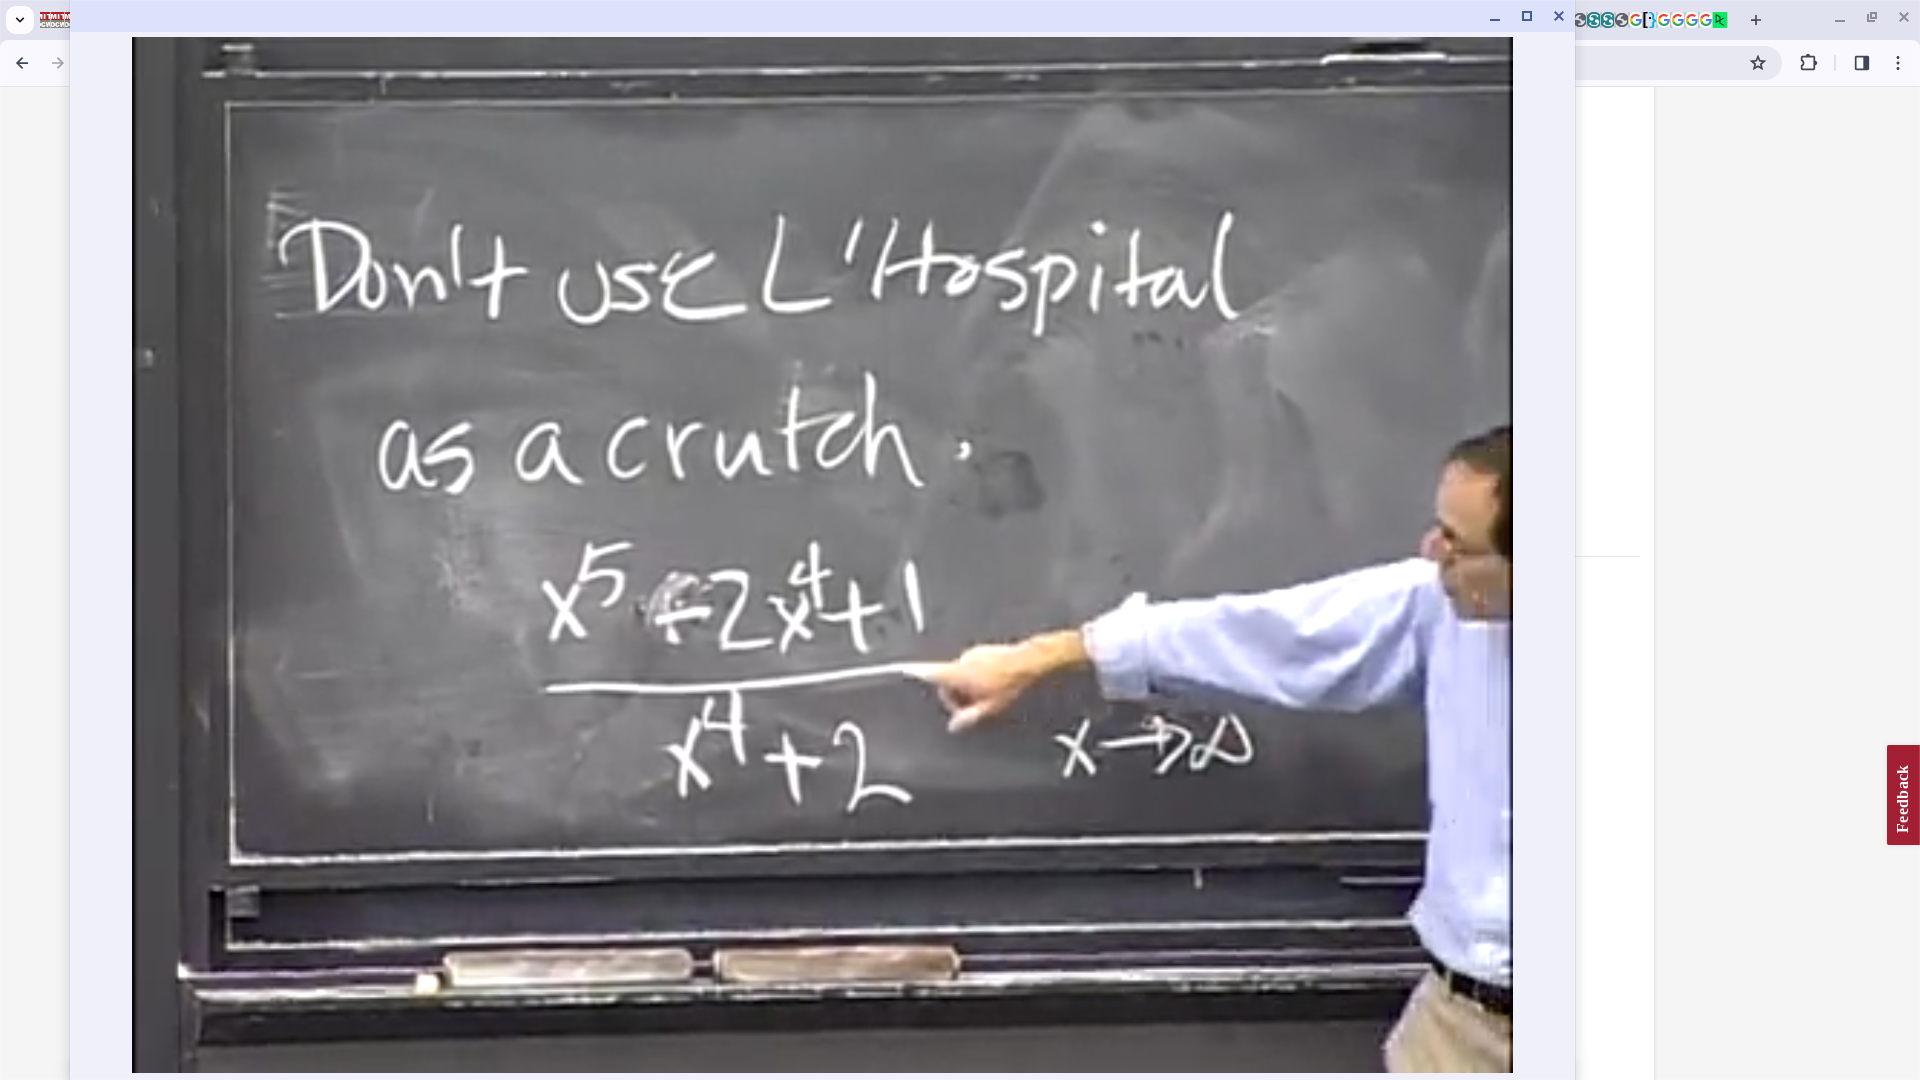 Don't use L'Hospital
as a crutch.
x⁵ - 2x⁴ + 1
x⁴ + 2
x → ∞
Feedback